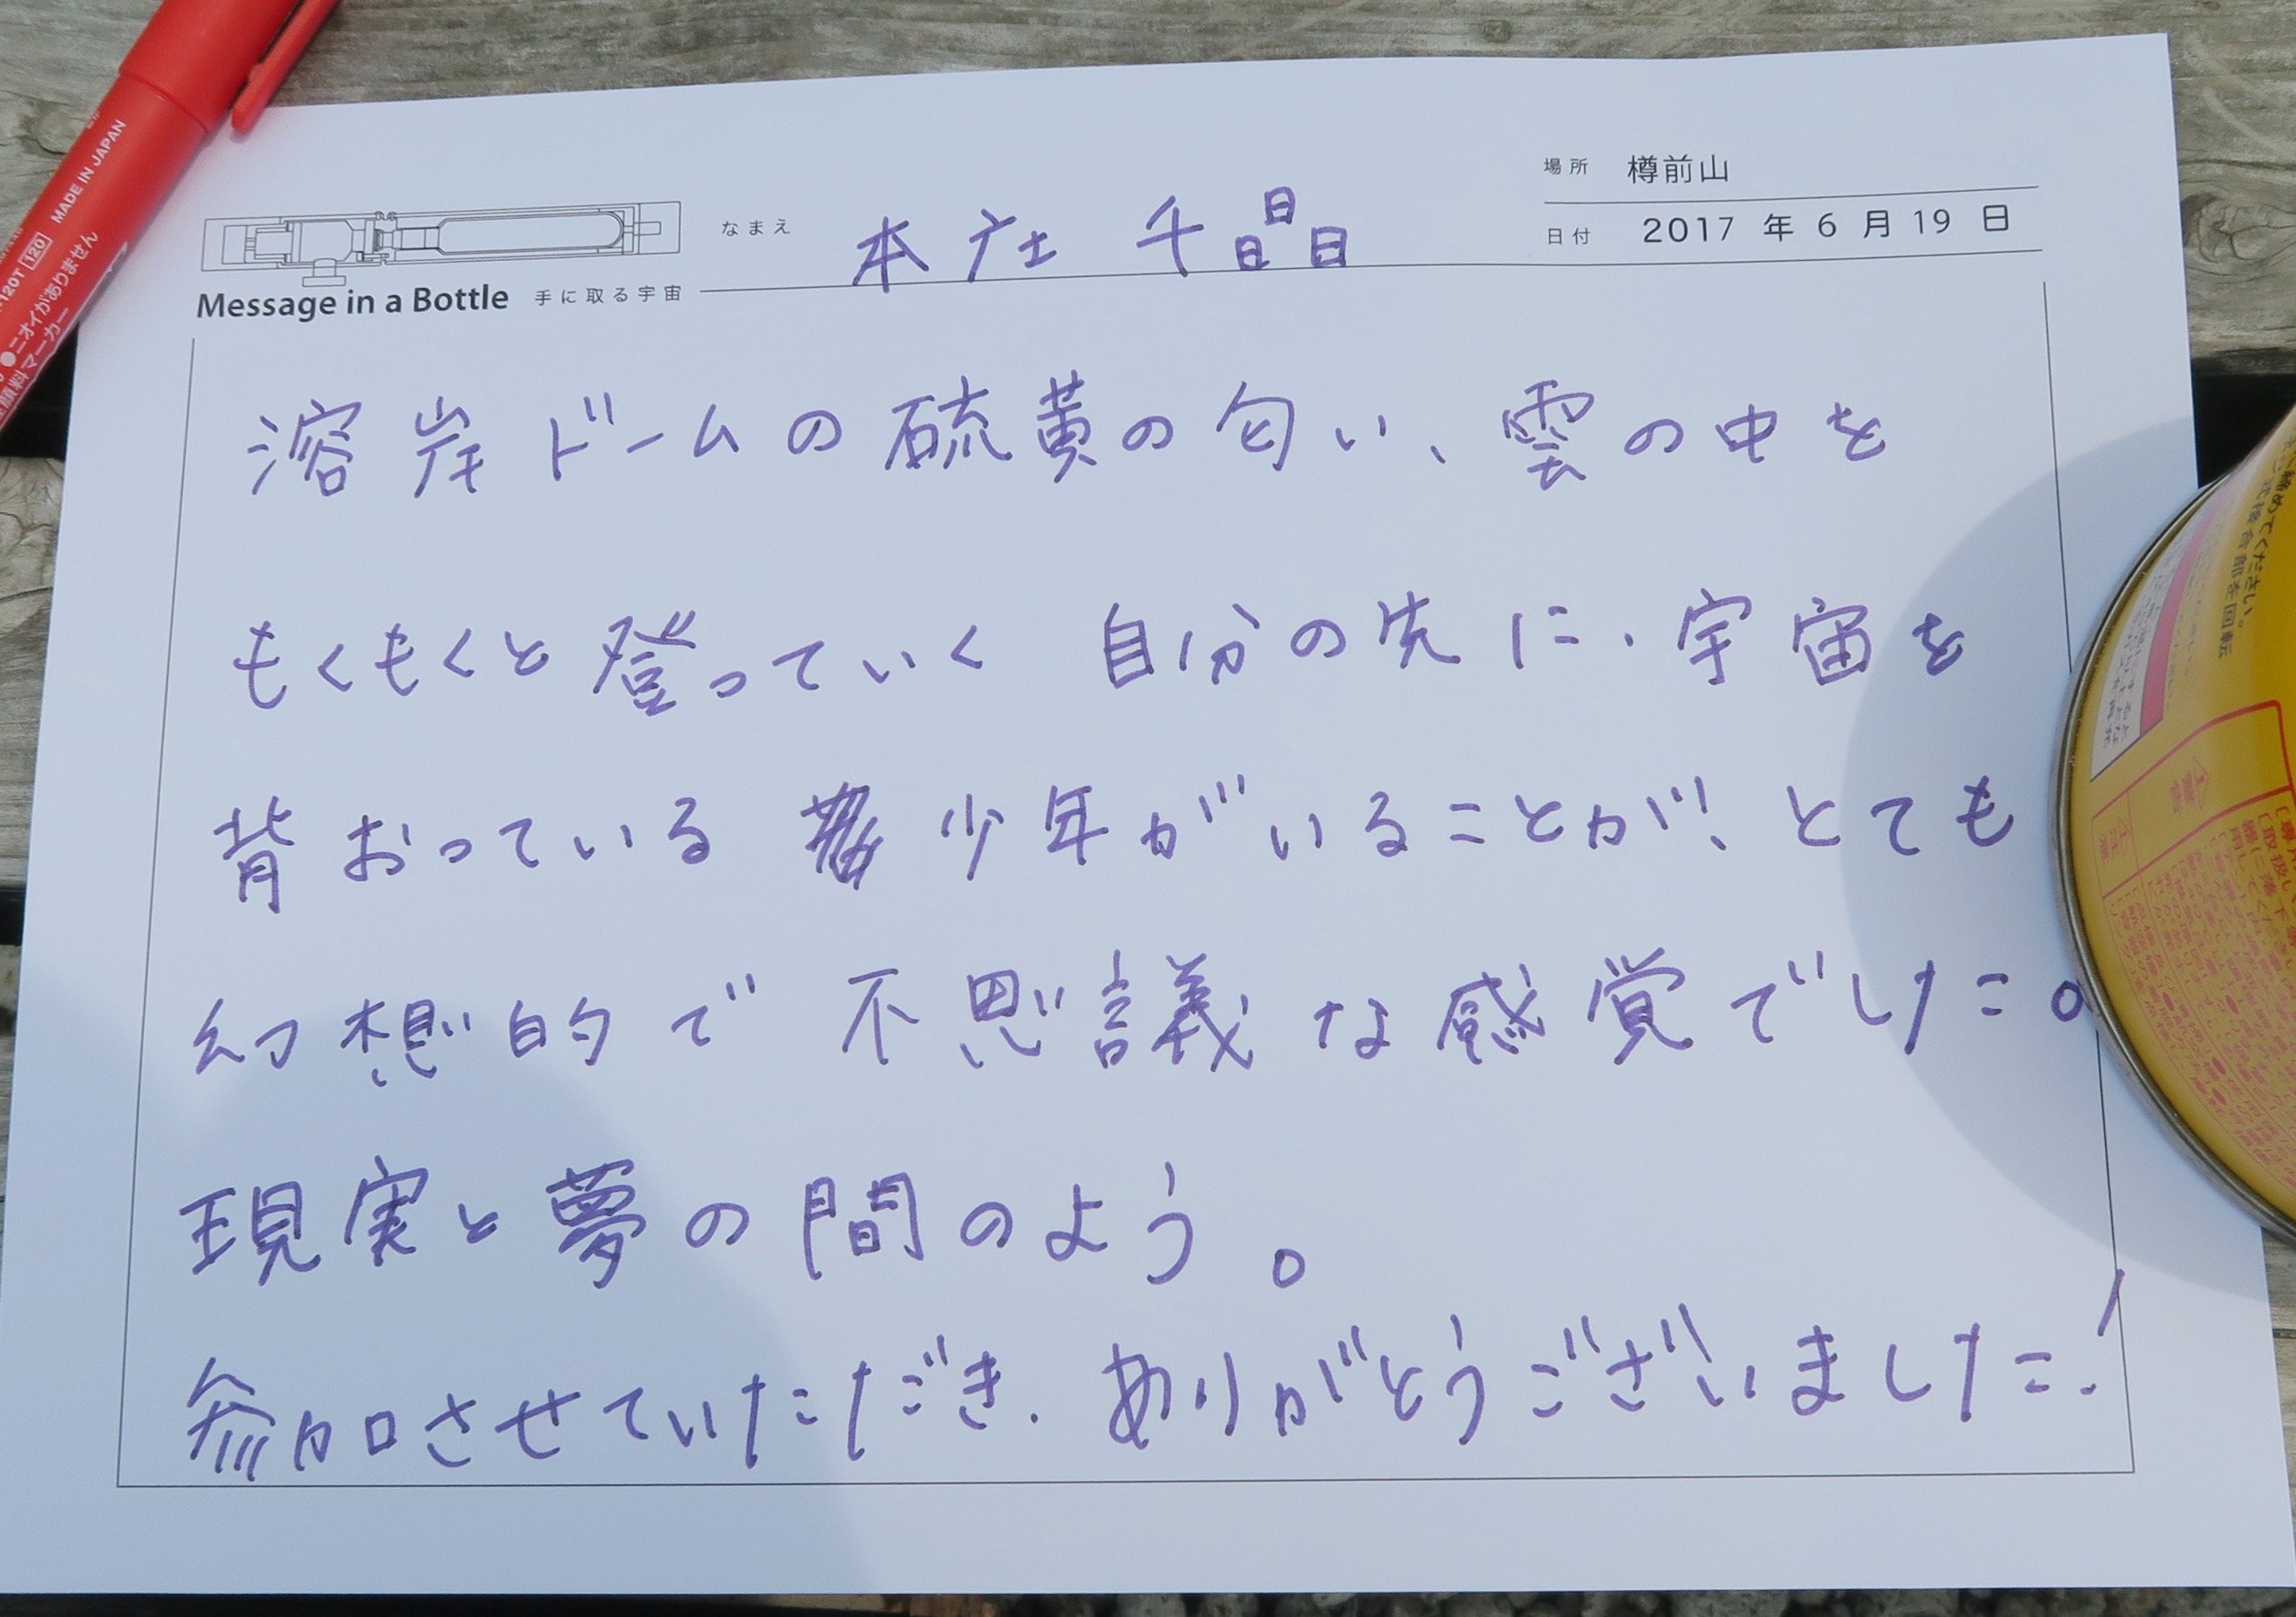 場所 樽前山
なまえ 本庄 千晶
日付 2017 年 6 月 19 日
Message in a Bottle 手に取る宇宙
溶岸ドームの硫黄の匂い、雲の中を
もくもくと登っていく 自分の先に、宇宙を
背おっている 少年がいることが、とても
幻想的で 不思議な感覚でした。
現実と夢の間のよう。
参加させていただき、ありがとうございました!
MADE IN JAPAN
120
●ニオイがありません
顔料マーカー